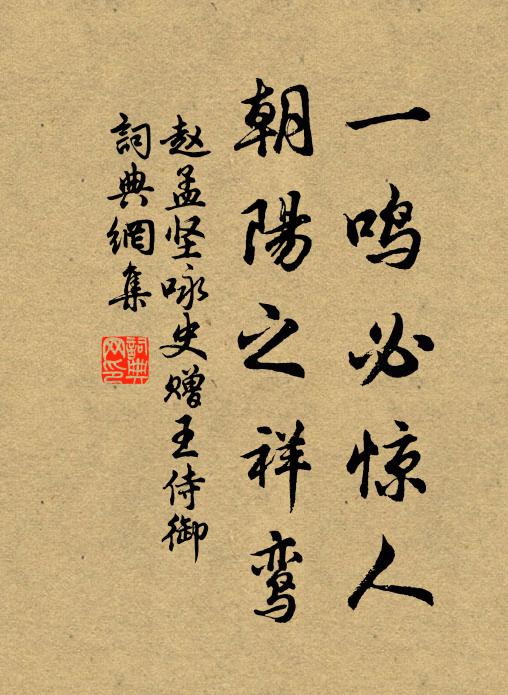 一鸣必惊人
朝陽之祥鸾
赵孟坚咏史赠王侍御
詞典網集
詞典
网印